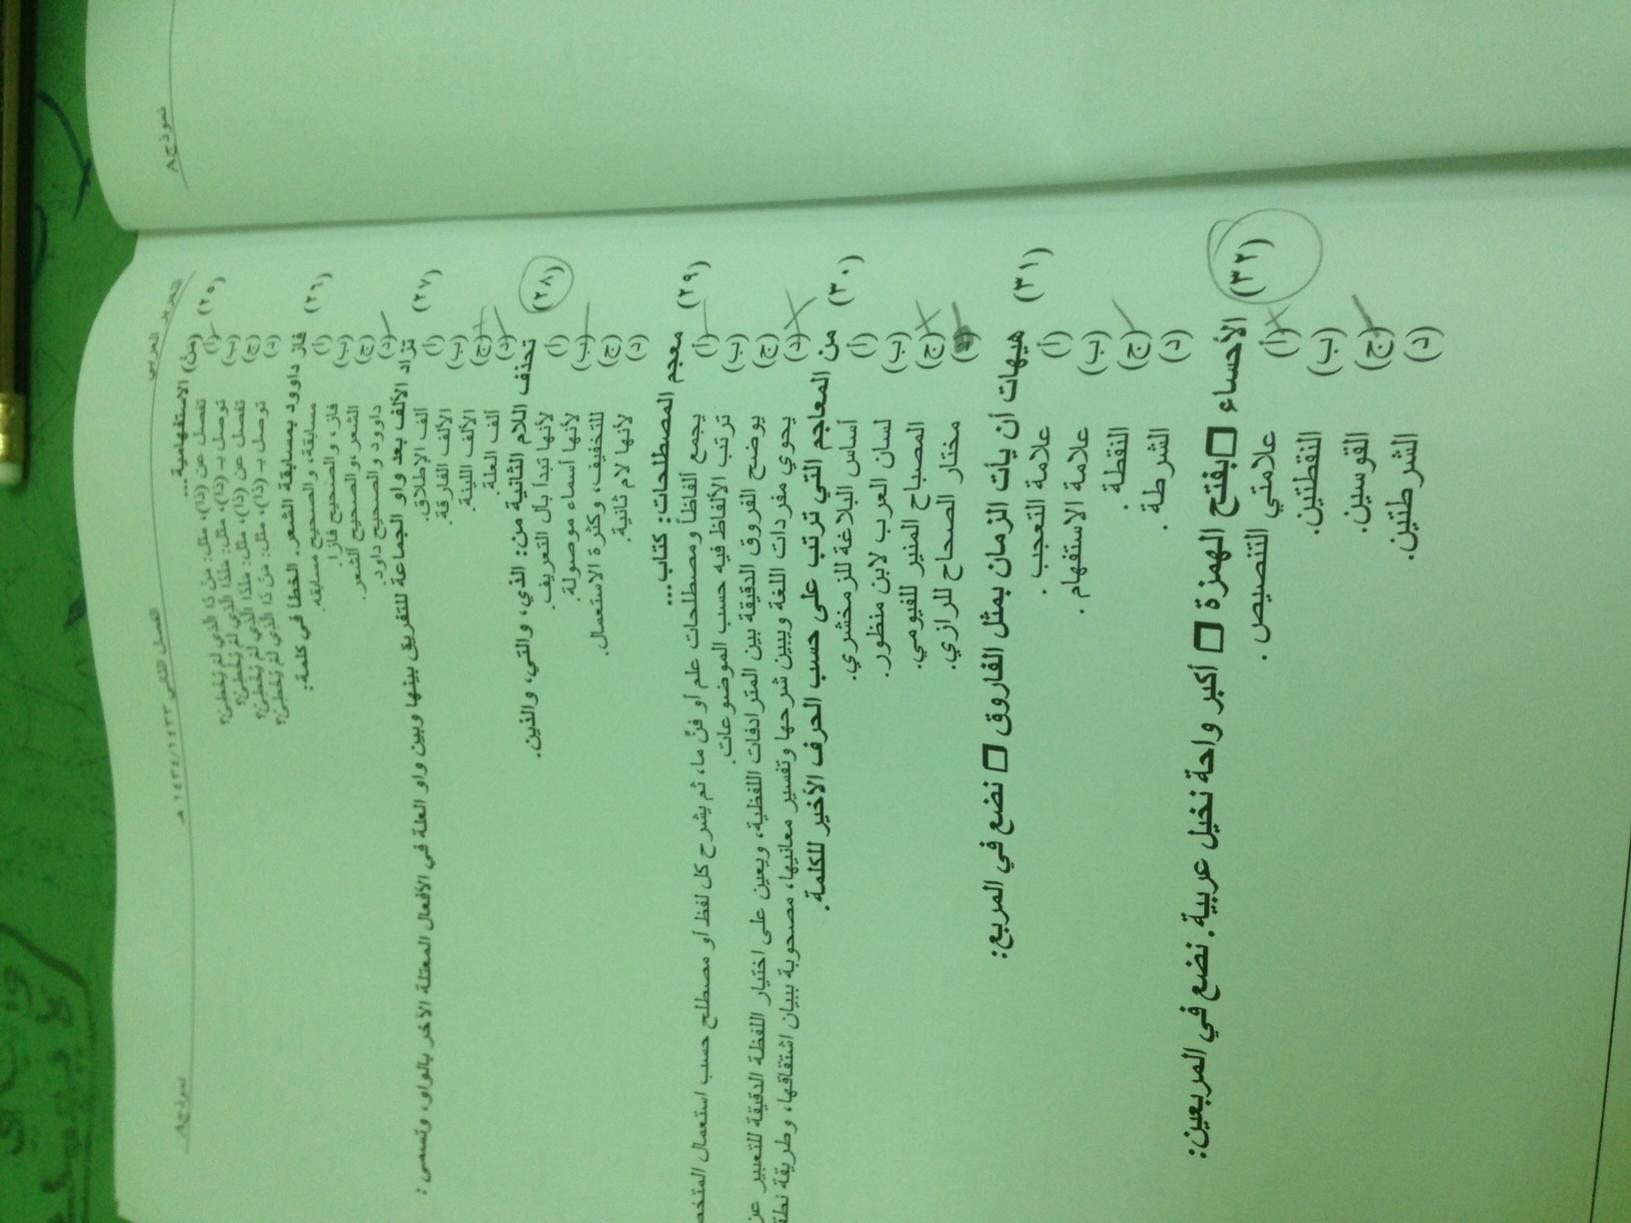 نموذج ٨
التحرير العربي
الفصل الثاني ١٤٣٣/١٤٣٤ هـ
نموذج ٨
(٢٥) (مَنْ) الاستفهامية...
(أ) تفصل عن (ذا)، مثل: مَنْ ذَا الَّذي لَمْ يُخطئ؟
(ب) توصل بـ (ذا)، مثل: مَنْذَا الَّذي لَمْ يُخطئ؟
(ج) تفصل عن (ذا)، مثل: مَنْذَا الَّذي لَمْ يُخطئ؟
(د) توصل بـ (ذا)، مثل: مَنْ ذَا الَّذي لَمْ يُخطئ؟
(٢٦) فاز داوود بمسابقة الشعر. الخطأ في كلمة:
(أ) مسابقة، والصحيح مسابقه.
(ب) فاز، والصحيح فازا.
(ج) الشعر، والصحيح ألشعر.
(د) داوود والصحيح داود.
(٢٧) تزاد الألف بعد واو الجماعة للتفريق بينها وبين واو العلة في الأفعال المعتلة الآخر بالواو، وتسمى:
(أ) ألف الإطلاق.
(ب) الألف الفارقة.
(ج) الألف اللينة.
(د) ألف العلة.
(٢٨) تحذف اللام الثانية من: الذي، والتي، والذين.
(أ) لأنها تبدأ بأل التعريف.
(ب) لأنها أسماء موصولة.
(ج) للتخفيف، وكثرة الاستعمال.
(د) لأنها لام ثانية.
(٢٩) معجم المصطلحات: كتاب...
(أ) يجمع ألفاظاً ومصطلحات علم أو فنٍّ ما، ثم يشرح كل لفظ أو مصطلح حسب استعمال
(ب) ترتب الألفاظ فيه حسب الموضوعات.
(ج) يوضح الفروق الدقيقة بين المترادفات اللفظية، ويعين على اختيار اللفظة الدقيقة للتعبير
(د) يحوي مفردات اللغة ويبين شرحها وتفسير معانيها، مصحوبة ببيان اشتقاقها، وطريقة
(٣٠) من المعاجم التي ترتب على حسب الحرف الأخير للكلمة.
(أ) أساس البلاغة للزمخشري.
(ب) لسان العرب لابن منظور.
(ج) المصباح المنير للفيومي.
(د) مختار الصحاح للرازي.
(٣١) هيهات أن يأت الزمان بمثل الفاروق □ نضع في المربع:
(أ) علامة التعجب.
(ب) علامة الاستفهام.
(ج) النقطة.
(د) الشرطة.
(٣٢) الأحساء □ بفتح الهمزة □ أكبر واحة نخيل عربية. نضع في المربعين:
(أ) علامتي التنصيص.
(ب) النقطتين.
(ج) القوسين.
(د) الشرطتين.